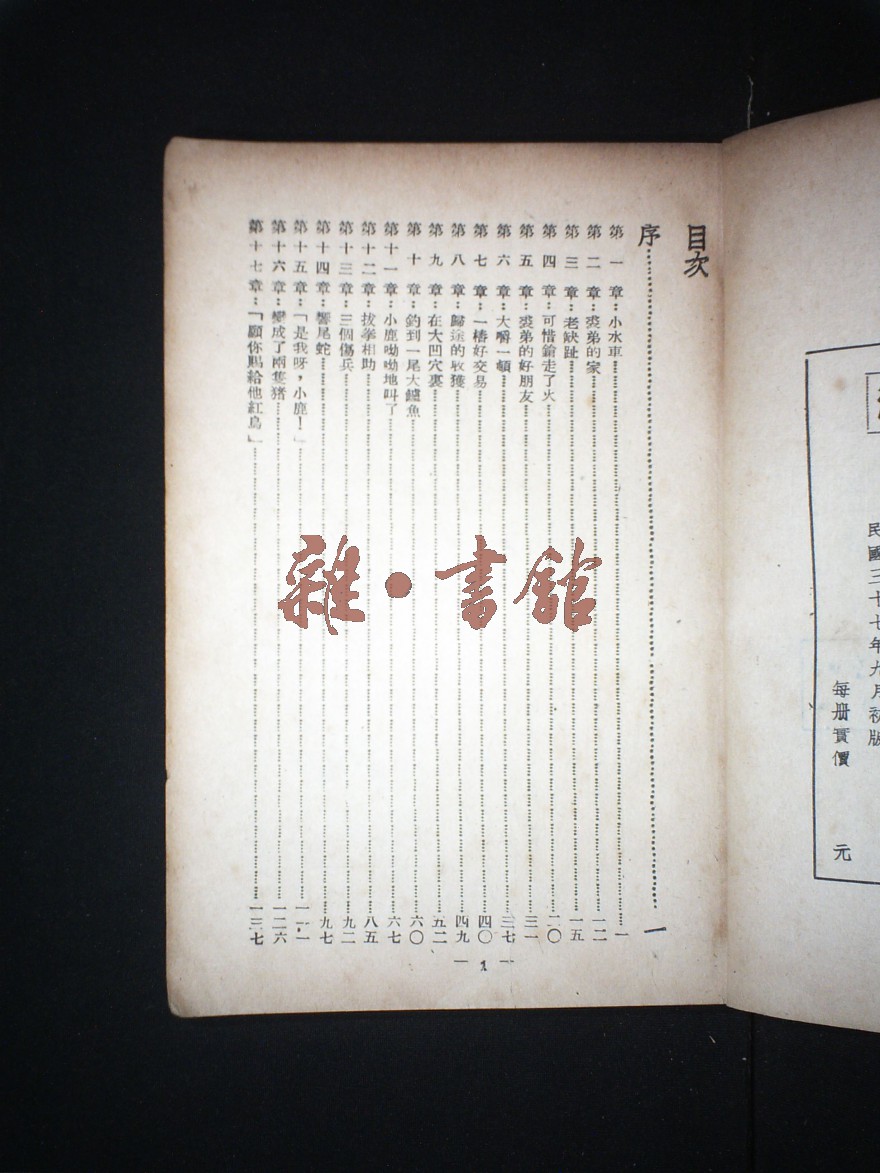 民國三十七年九月初版
每册實價　元
目次
序……一
第一章：小水車……一
第二章：裘弟的家……一二
第三章：老缺趾……一五
第四章：可惜鎗走了火……二〇
第五章：裘弟的好朋友……三一
第六章：大嚼一頓……三七
第七章：一樁好交易……四〇
第八章：歸途的收獲……四九
第九章：在大凹穴裏……五二
第十章：釣到一尾大鱸魚……六〇
第十一章：小鹿呦呦地叫了……六七
第十二章：拔拳相助……八五
第十三章：三個傷兵……九二
第十四章：響尾蛇……九七
第十五章：「是我呀，小鹿！」……
第十六章：變成了兩隻猪……一二六
第十七章：「願你賜給他紅鳥」……一三七
— 1 —
雜·書館